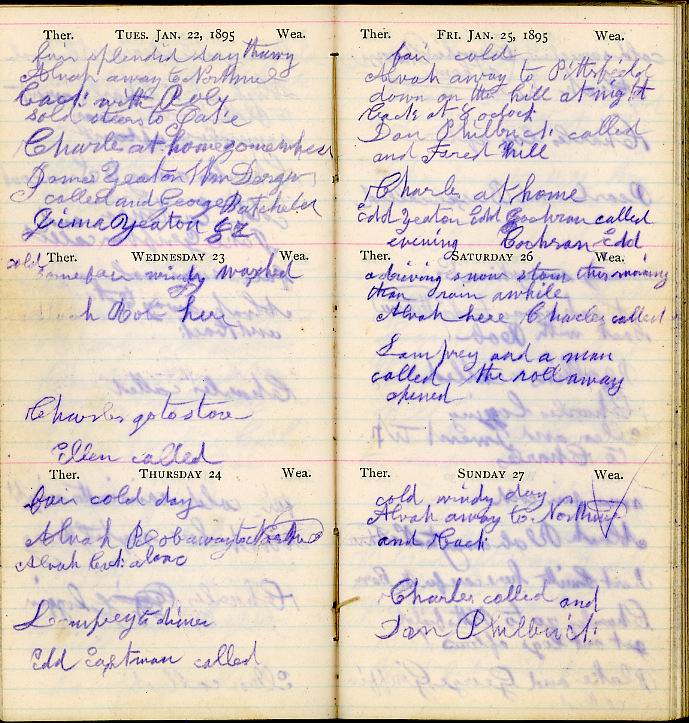 Ther. TUES. JAN. 22, 1895 Wea.
fair splendid day thawy
Alvah away to
back with Roby
sold steers to
Charles at home
James Yeaton
called and George Batchelder
Yeaton
Ther. WEDNESDAY 23 Wea.
cold fair windy washed
h Rob here
Charles go to store
Ellen called
Ther. THURSDAY 24 Wea.
fair cold day
Alvah Rob away to
Alvah back alone
Lamprey to dinner
Edd Eastman called
Ther. FRI. JAN. 25, 1895 Wea.
fair cold
Alvah away to Pittsfield
down on the hill at night
back at 8 oclock
Dan Philbrick called
and Forest Hill
Charle at home
Edd Yeaton Edd Cochran called
evening Cochran Edd
Ther. SATURDAY 26 Wea.
a driving snow storm this morning
than rain awhile
Alvah here Charles called
Lamprey and a man
called the roll away
opened
Ther. SUNDAY 27 Wea.
cold windy day
Alvah away to
and back
Charles called and
Dan Philbrick